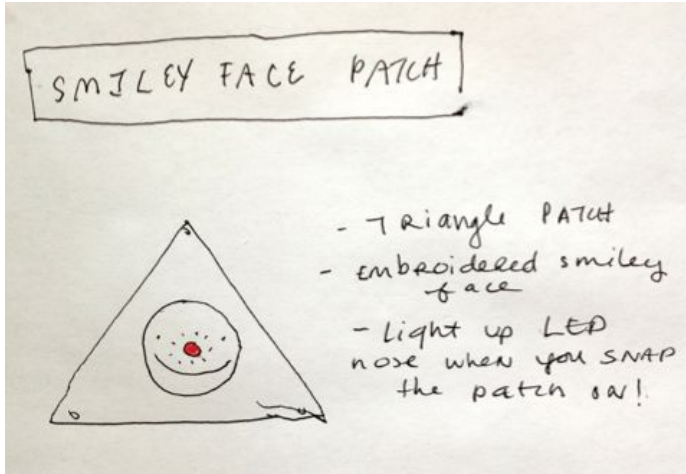 SMILEY FACE PATCH
- TRiangle PATCH
- EMbroidered smiley
face
- Light up LED
nose when you SNAP
the patch on!